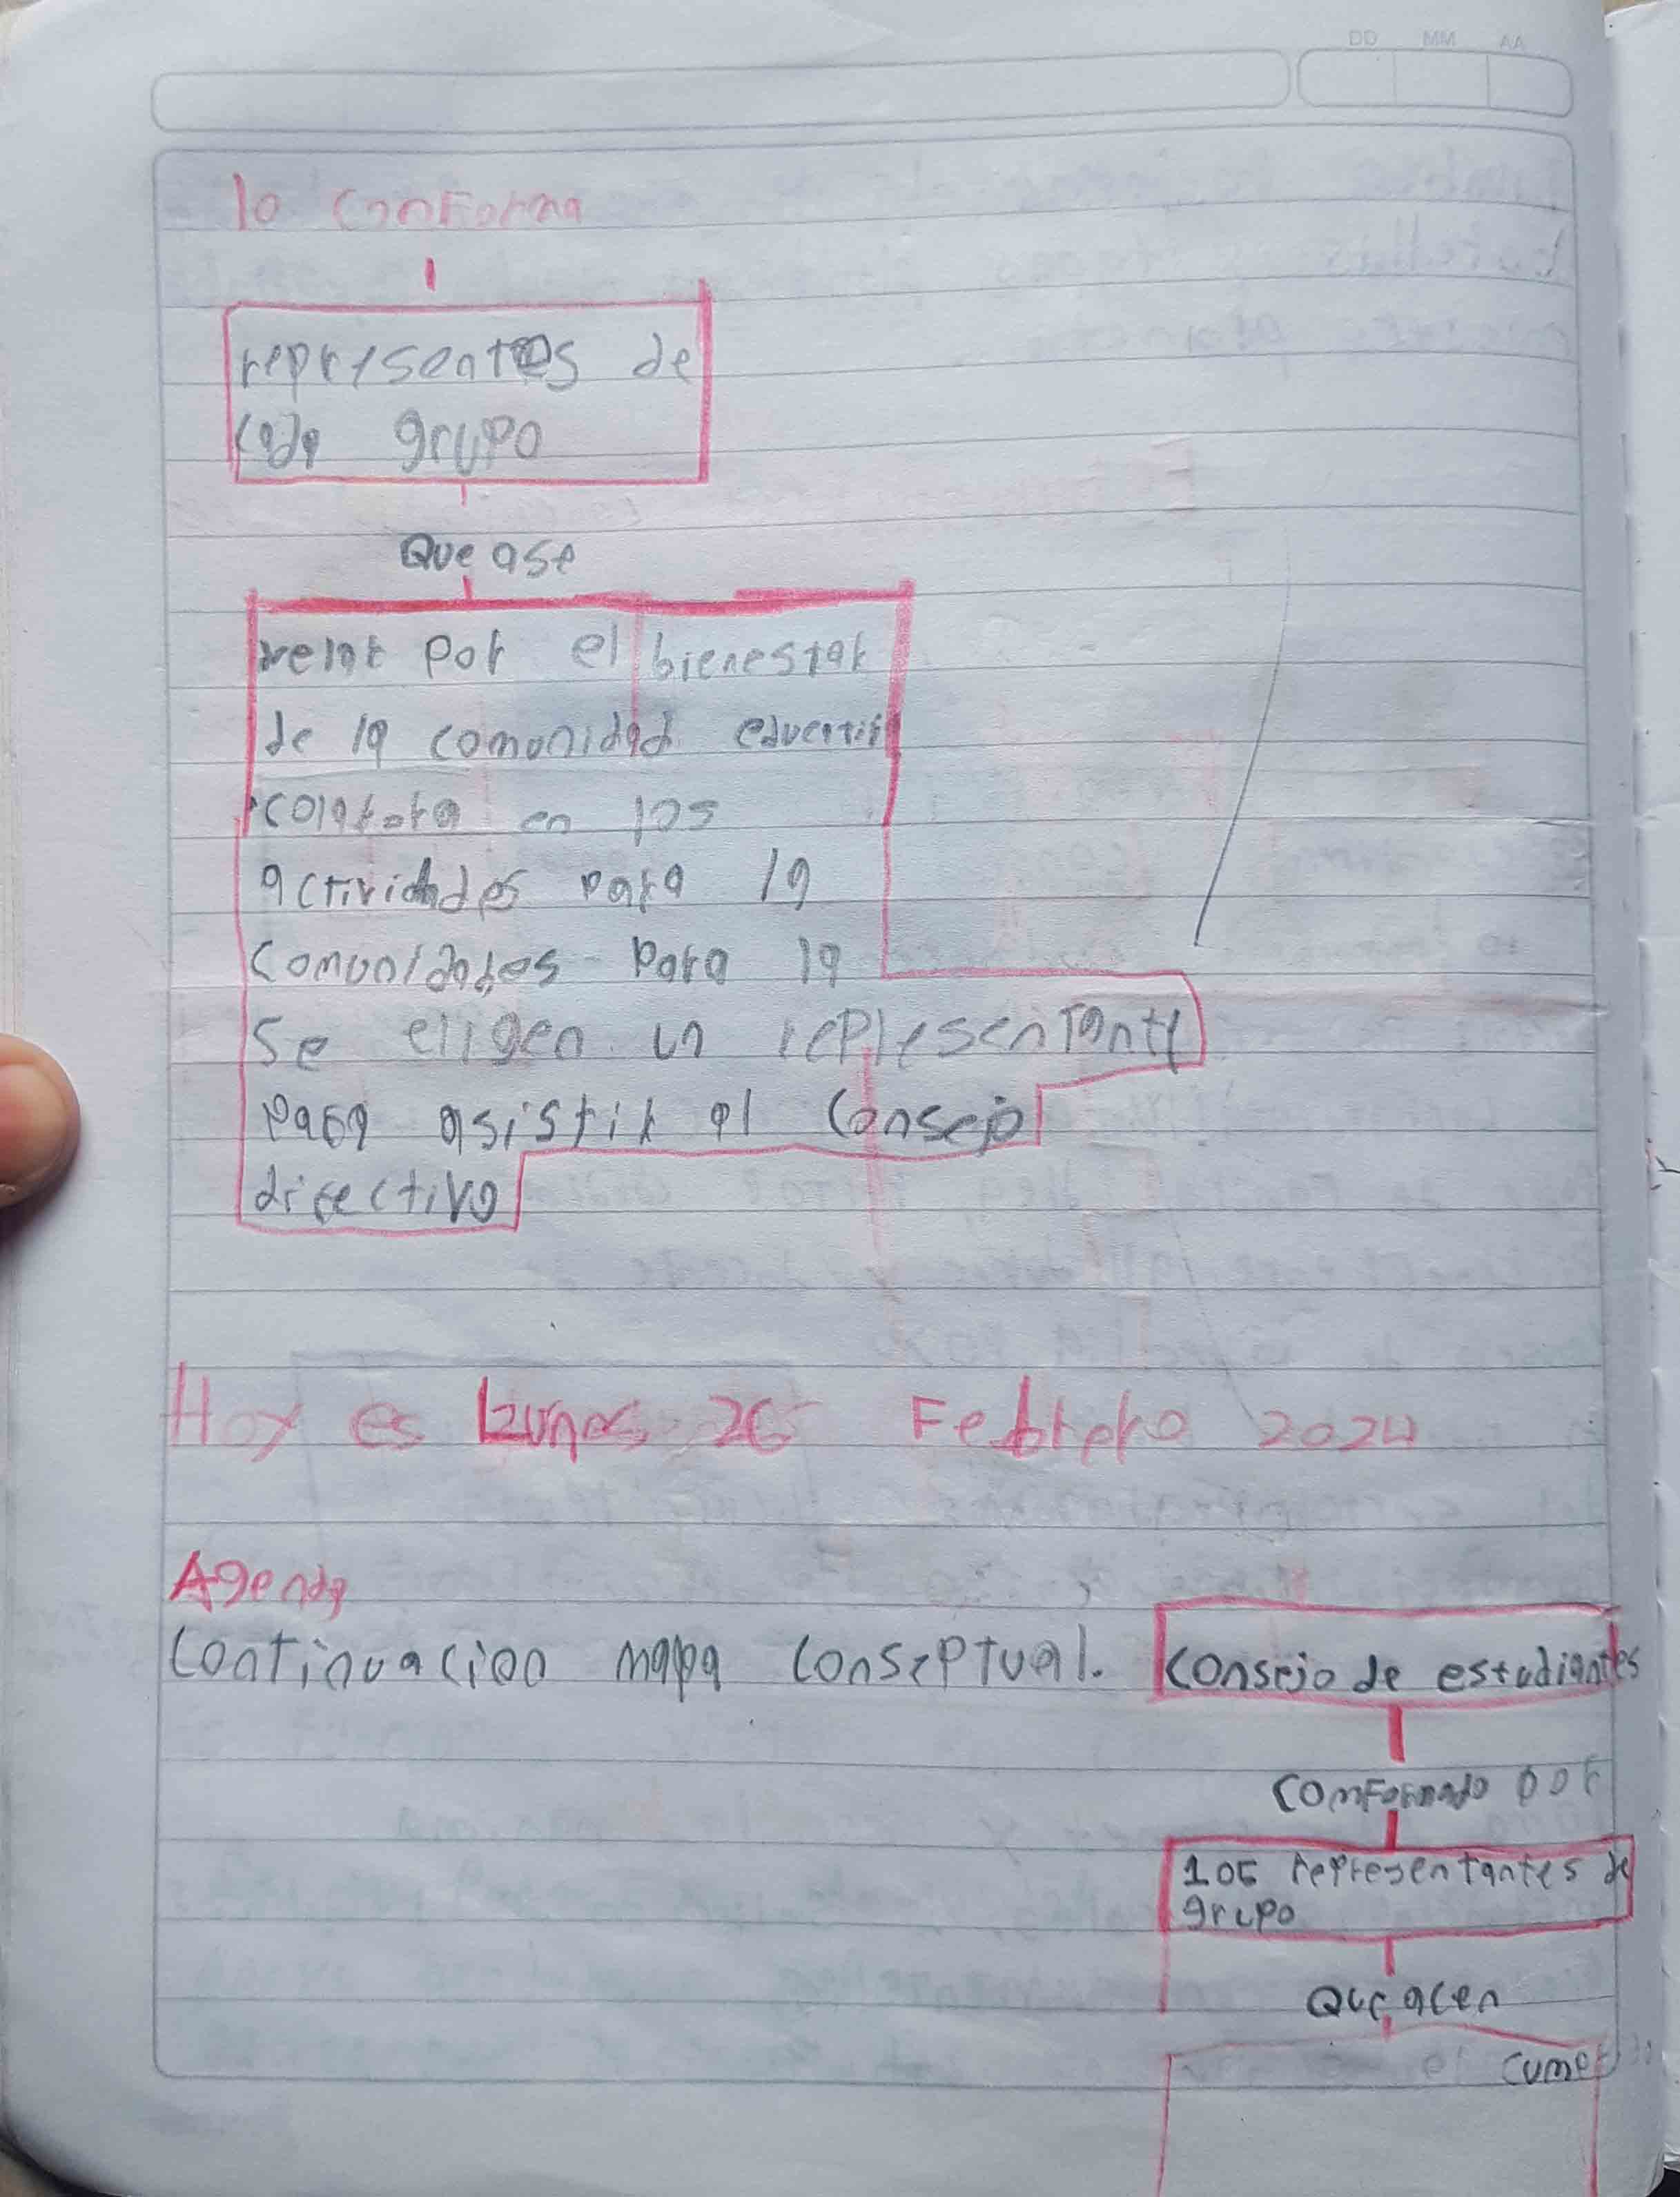 DD MM AA
lo conforma
represent es de
cada grupo
Que ase
velar por el bienestar
de la comunidad
colabora en los
actividades para la
comunidades para la
Se eligen un representante
para asistir al Consejo
directivo
Hoy es Lunes 26 Febrero 2024
Agenda
Continuacion mapa conseptual.
Consejo de estudiantes
comformado por
los representantes de
grupo
Que acen